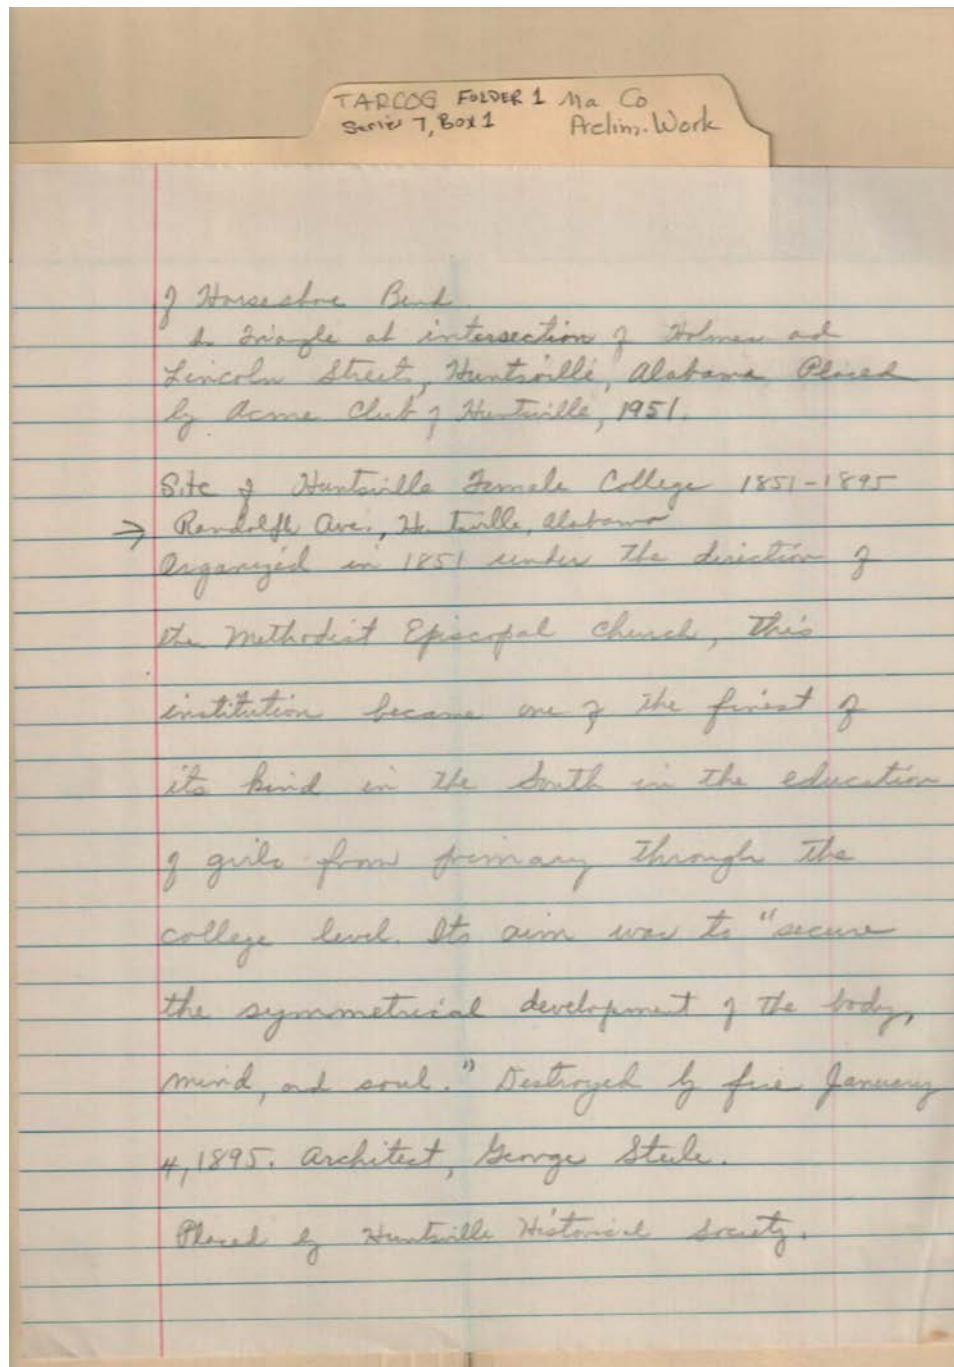 TARCOG FOLDER 1 Ma Co
Series 7, Box 1 Prelim. Work
of Horseshoe Bend.
In Triangle at intersection of Holmes and
Lincoln Streets, Huntsville, Alabama Placed
by Acme Club of Huntsville, 1951.
Site of Huntsville Female College 1851-1895
→ Randolph Ave., Huntsville, Alabama
Organized in 1851 under the direction of
the Methodist Episcopal Church, this
institution became one of the finest of
its kind in the South in the education
of girls from primary through the
college level. Its aim was to "secure
the symmetrical development of the body,
mind, and soul." Destroyed by fire January
4, 1895. Architect, George Steele.
Placed by Huntsville Historical Society.